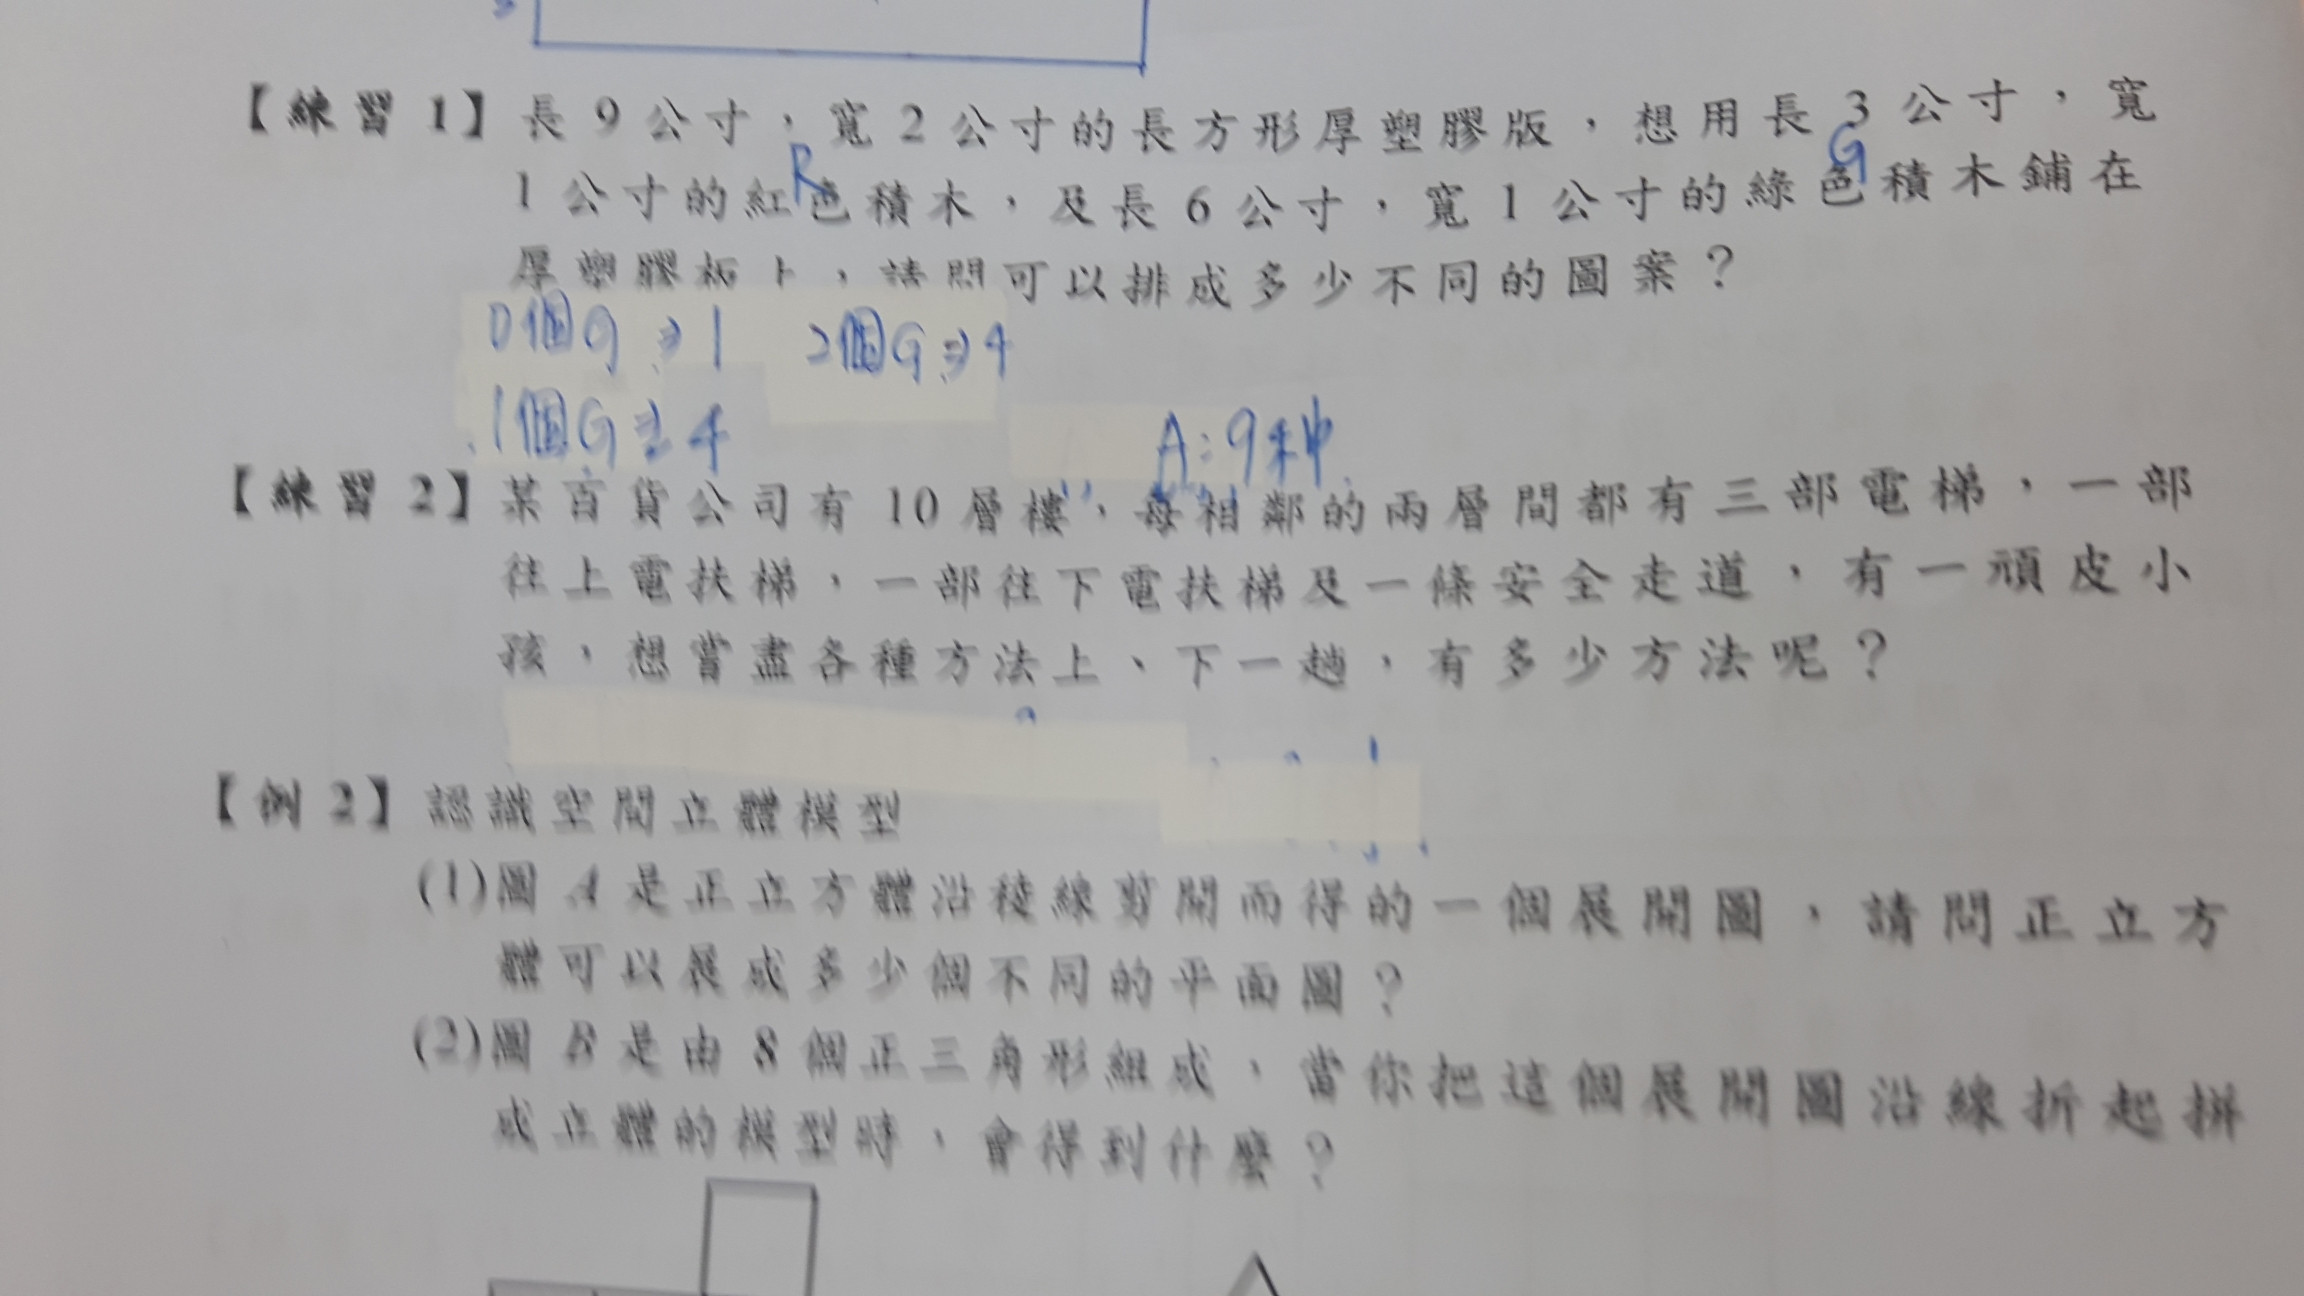 【練習1】長9公寸，寬2公寸的長方形厚塑膠版，想用長3公寸，寬
R G
1公寸的紅色積木，及長6公寸，寬1公寸的綠色積木鋪在
厚塑膠板上，請問可以排成多少不同的圖案？
0個G⇒1 2個G⇒4
1個G⇒4 A:9种
【練習2】某百貨公司有10層樓，每相鄰的兩層間都有三部電梯，一部
往上電扶梯，一部往下電扶梯及一條安全走道，有一頑皮小
孩，想嘗盡各種方法上、下一趟，有多少方法呢？
【例2】認識空間立體模型
(1)圖A是正立方體沿稜線剪開而得的一個展開圖，請問正立方
體可以展成多少個不同的平面圖？
(2)圖B是由8個正三角形組成，當你把這個展開圖沿線折起拼
成立體的模型時，會得到什麼？